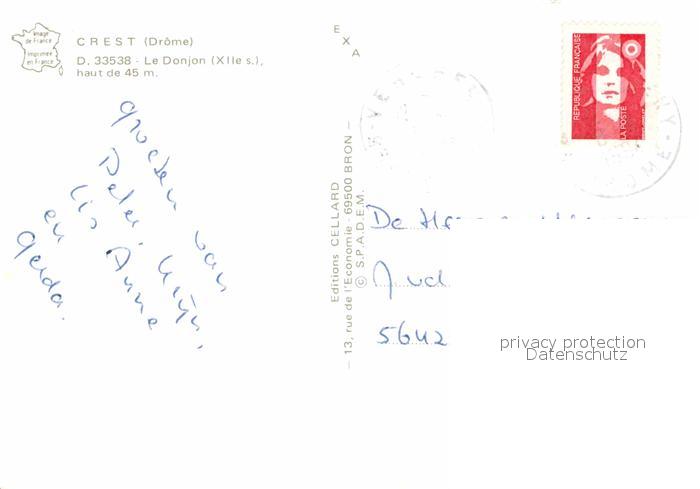 Image
de France
Imprimée
en France
CREST (Drôme)
D. 33538 - Le Donjon (XIIe s.),
haut de 45 m.
EXA
groeten van
Peter
Lis Anne
en
Gerda.
Editions CELLARD
— 13, rue de l'Economie - 69500 BRON —
© S.P.A.D.E.M.
REPUBLIQUE FRANÇAISE
LA POSTE
De
5642
privacy protection
Datenschutz